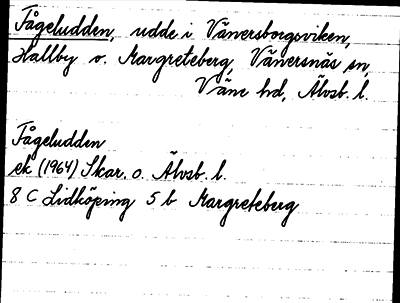 Fågeludden, udde i Vänersborgsviken,
Hallby o. Margreteberg, Vänersnäs sn,
Väne hd, Älvsb. l.
Fågeludden
ek (1964) Skar. o. Älvsb. l.
8 C Lidköping 5 b Margreteberg